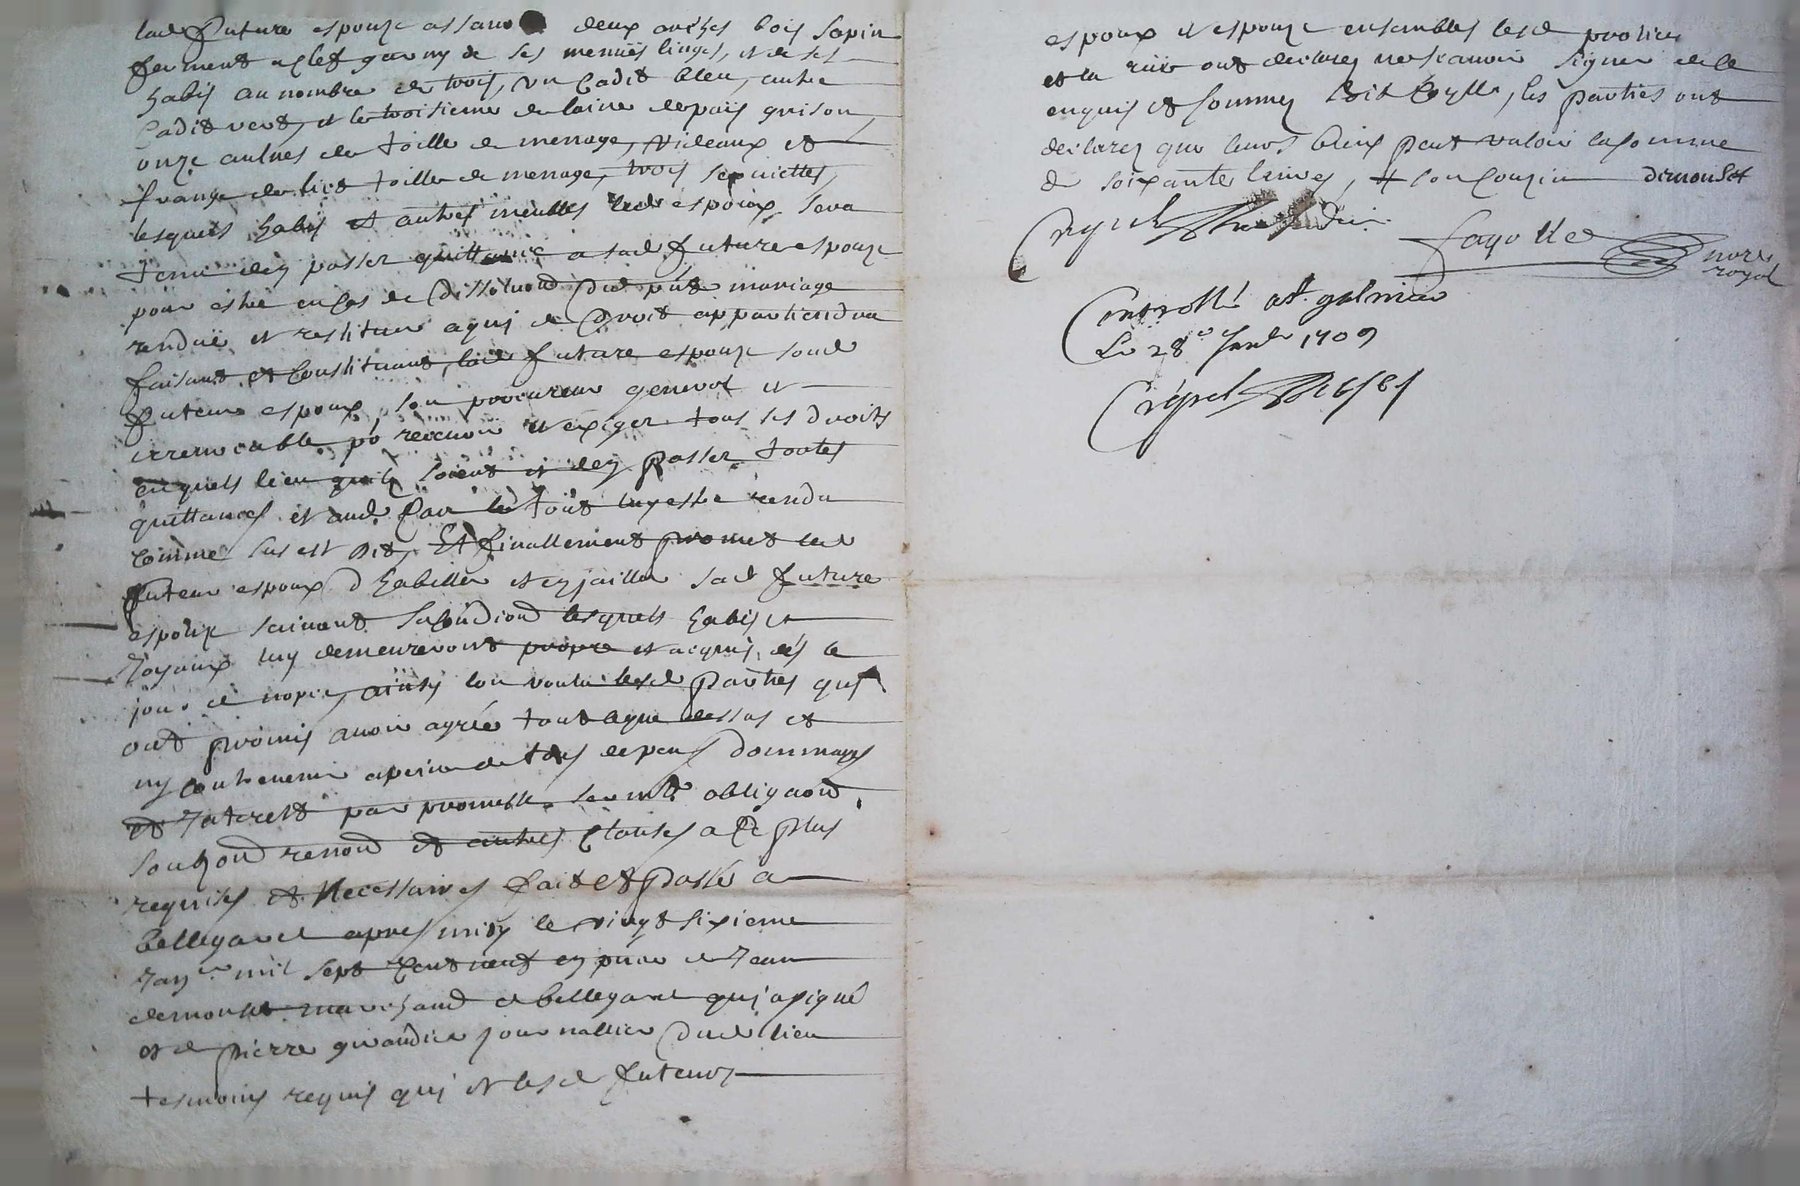 lad future espouze assavoir deux arches bois sapin
ferment a clef garny de ses menües linges, et de ses
habis au nombre de trois, un Cadis bleu, autre
Cadis vert, et le troisieme de laine de païs grison,
onze aulnes de toille de menage, rideaux et
frange de lict toille de menage, trois serviettes,
lesquels habis et autres meubles led espoux sera
tenu den passer quittance a sad future espouze
pour estre en cas de dissoluon dud pnt mariage
rendüe et restitue a qui de Droit appartiendra
faisant et Constituant, lad future espouze soud
futeur espoux, son procureur general et
irrevocable po recevoir et exiger tous ses droits
en quels lieu quils soient et den passer toutes
quittances et aud Cas le tout luy estre rendu
Comme sus est Dit, Et finallement promet led
futeur espoux d'habiller et enjailler sad future
espouze suivant sa Condiond lesquels habis et
Joyaux luy demeureront propre et acquis dés le
jour de nopces, ainsy lon voulu lesd parties qui
ont promis avoir agrée tout ce que dessus et
ny Contrevenir a peine de tous depens dommages
et Interests par promesse sermt obligaond
soubzond renond et autres Clauses a Ce plus
requises et Necessaires fait et passé a
bellegarde apres midy le vingt sixieme
Janer mil sept Cent neuf en pnce de Jean
demoulet marchand de bellegarde qui a signé
et de pierre giraudier journallier Dud lieu
tesmoins requis qui et lesd futeurs
espoux et espouze ensembles lesd proches
et la rüe ont declarez ne scavoir signer de ce
enquis et sommez soit Coylle, les parties ont
declarez que leurs biens peut valoir la somme
de soixante livres, + son Cousin demoulet
Crespet
fayolle nore
royal
Controllé a st galmier
Le 28e Janvr 1709
Crespet